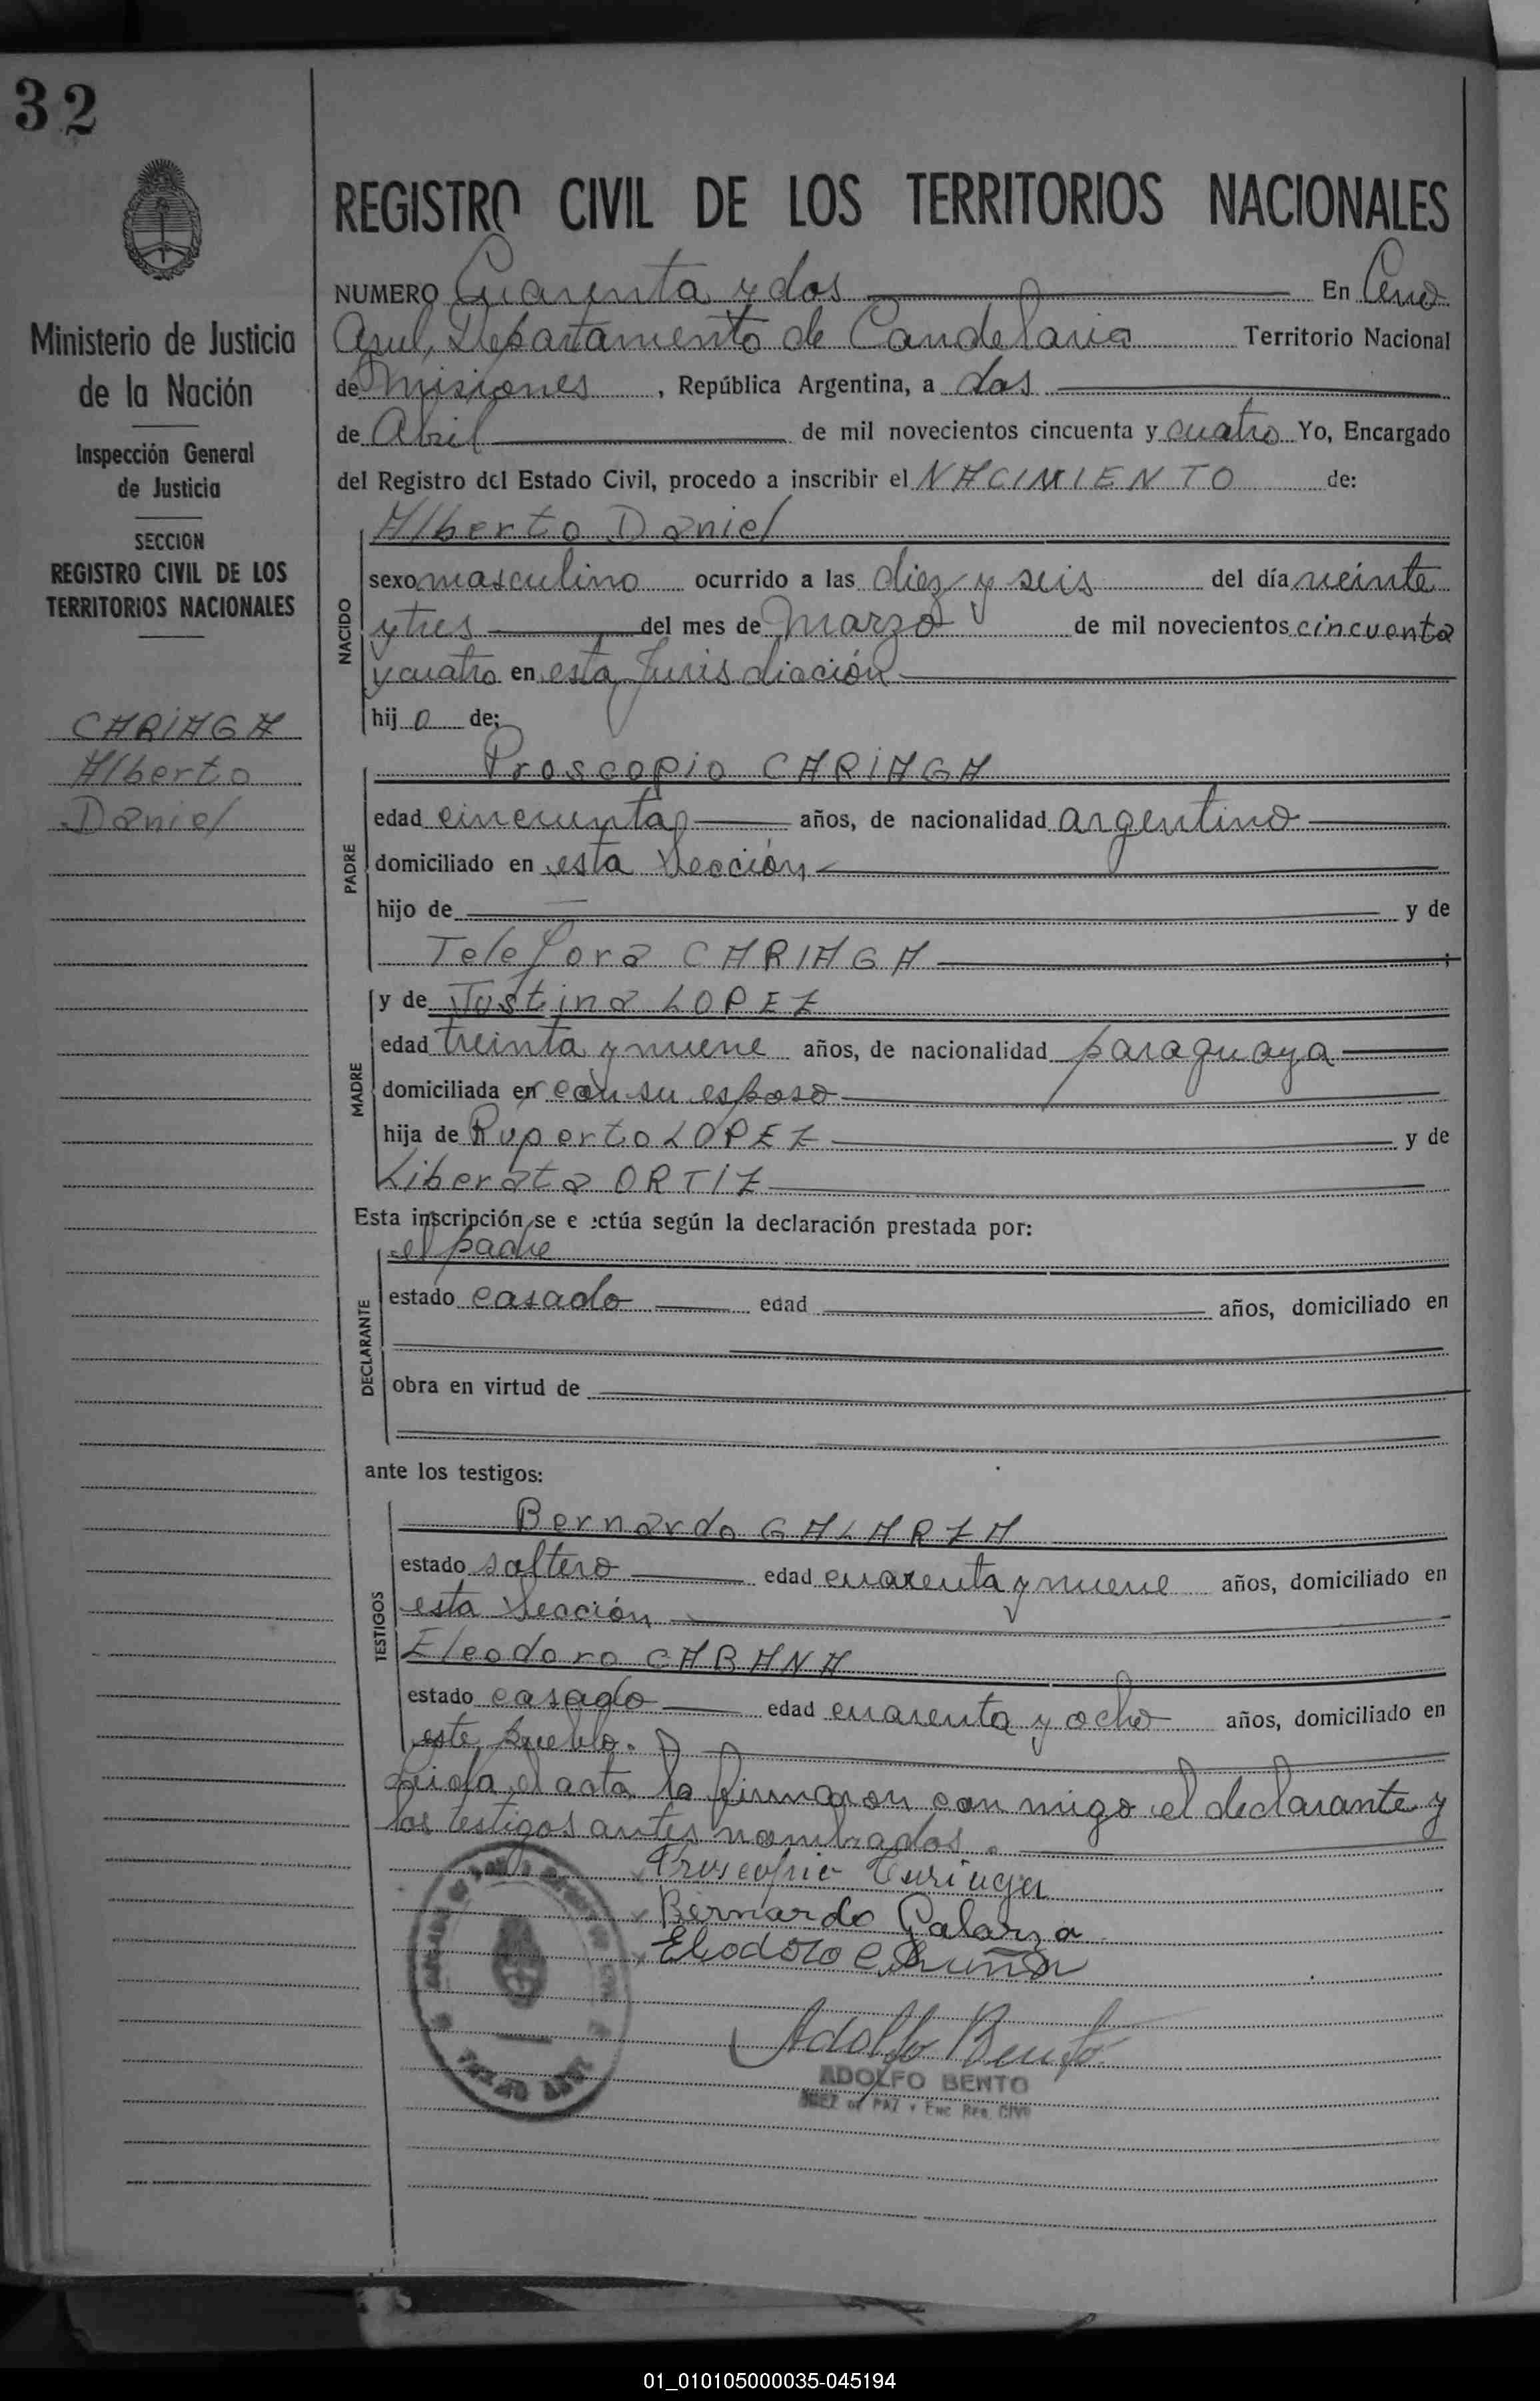 32
Ministerio de Justicia
de la Nación
Inspección General
de Justicia
SECCION
REGISTRO CIVIL DE LOS
TERRITORIOS NACIONALES
CARIAGA
Alberto
Daniel
REGISTRO CIVIL DE LOS TERRITORIOS NACIONALES
NUMERO Cuarenta y dos En Cerro
Azul, Departamento de Candelaria Territorio Nacional
de Misiones, República Argentina, a dos
de Abril de mil novecientos cincuenta y cuatro Yo, Encargado
del Registro del Estado Civil, procedo a inscribir el NACIMIENTO de:
NACIDO
Alberto Daniel
sexo masculino ocurrido a las diez y seis del día veinte
y tres del mes de Marzo de mil novecientos cincuenta
y cuatro en esta Jurisdicción
hijo de:
PADRE
Proscopio CARIAGA
edad cincuenta años, de nacionalidad argentino
domiciliado en esta Sección
hijo de y de
Telefora CARIAGA
MADRE
y de Justina LOPEZ
edad treinta y nueve años, de nacionalidad paraguaya
domiciliada en con su esposo
hija de Ruperto LOPEZ y de
Liberata ORTIZ
Esta inscripción se e ectúa según la declaración prestada por:
DECLARANTE
el padre
estado casado edad años, domiciliado en
obra en virtud de
ante los testigos:
TESTIGOS
Bernardo GALARZA
estado soltero edad cuarenta y nueve años, domiciliado en
esta Sección
Eleodoro CABANA
estado casado edad cuarenta y ocho años, domiciliado en
este pueblo.
Leida el acta la firmaron con migo el declarante y
los testigos antes nombrados.
Proscopio Cariaga
Bernardo Galarza
Eleodoro
Adolfo Bento
ADOLFO BENTO
JUEZ DE PAZ y Enc. Reg. CIVIL
01_010105000035-045194